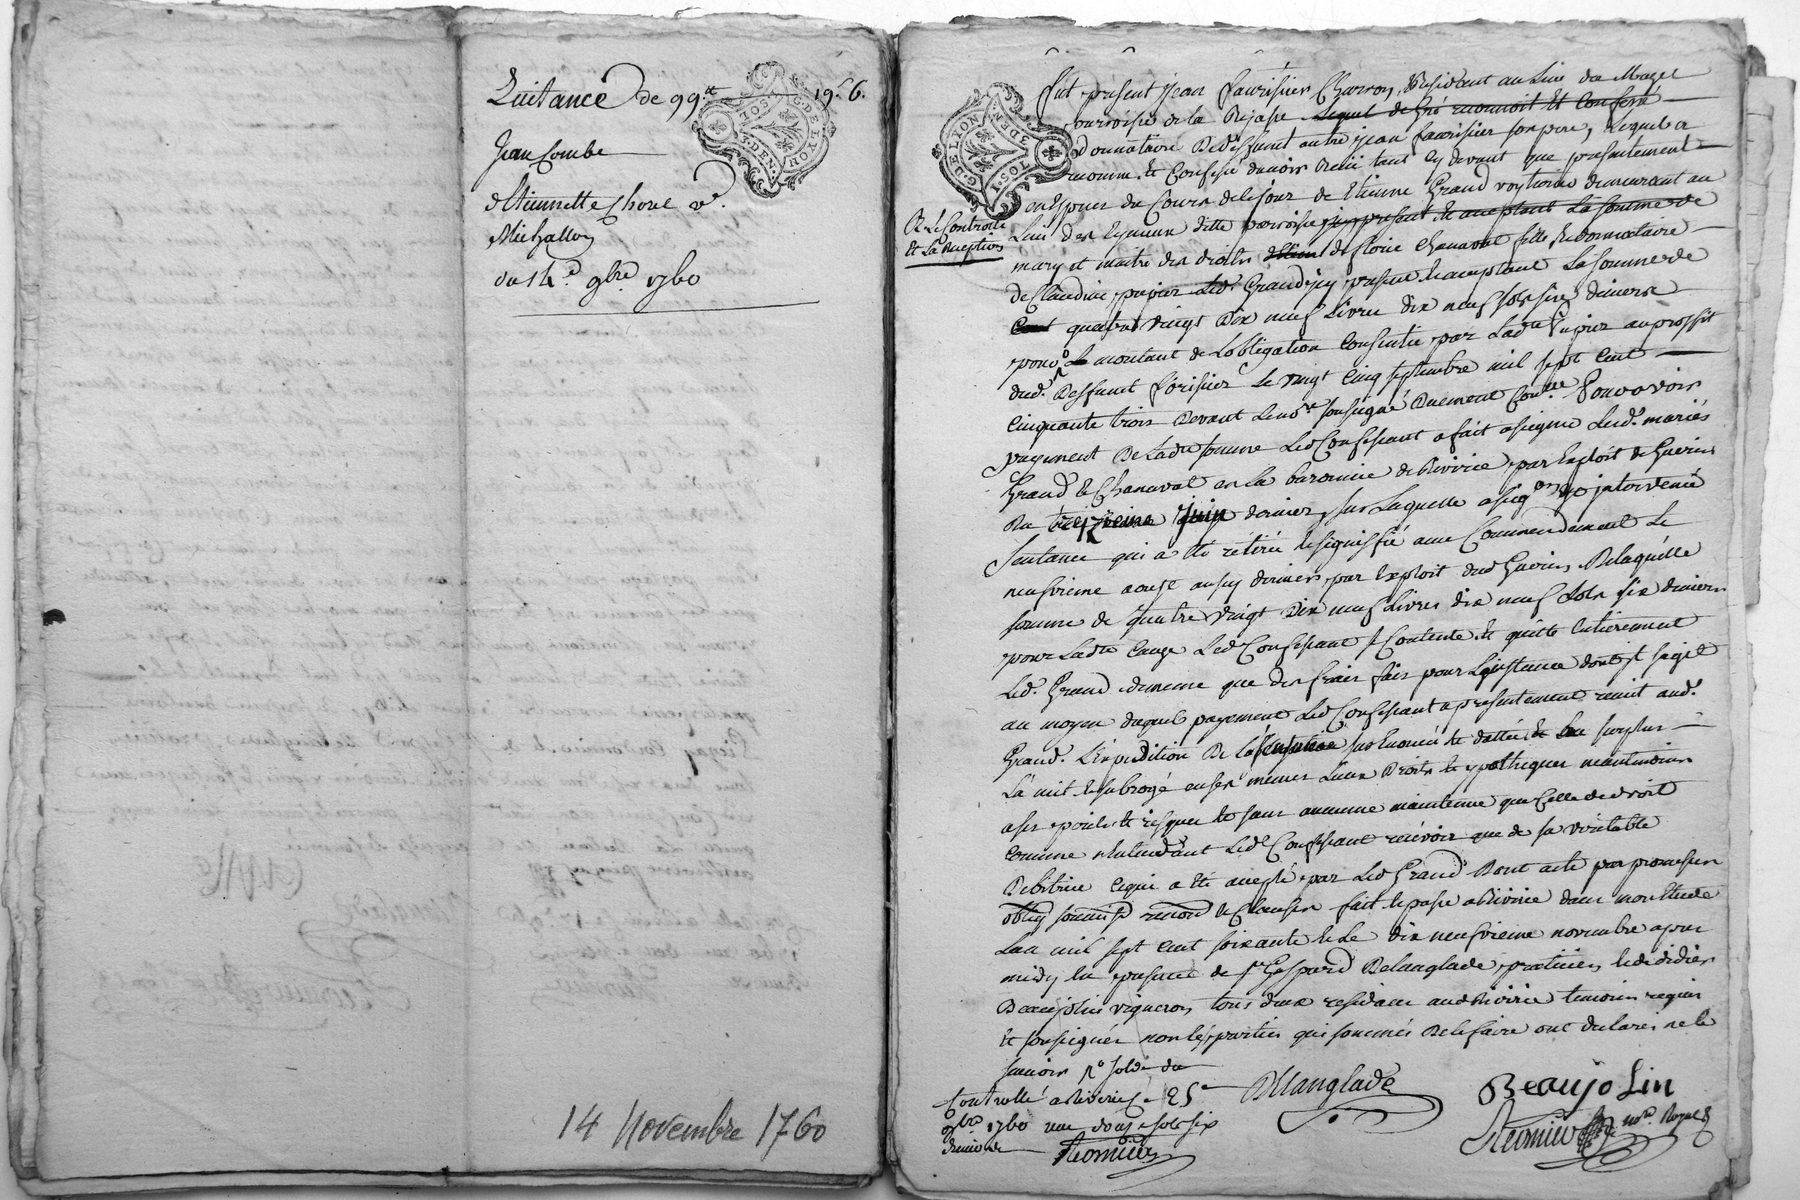 Quitance de 99tt 19s 6.
Jean Combe
Etiennette Choue ve.
Michallon
du 14e. 9bre 1760
14 Novembre 1760
G. DE LYON
SOL. 3. DEN.
Fut présent jean faurisier Charron, Residant au lieu du Mazet
parroisse de la Rejasse lequel de gré reconnoit et confessé
donnataire de deffunt autre jean faurisier son père, lequel a
reconnu et Confessé d'avoir Receu tant cy devant que présentement
en espices du Cours de ce jour de Etienne Grand voyturier demeurant au
Lieu des ditte parroisse icy présent et acceptant La somme de
mary et maitre des droits de florie Chanavat fille et donnataire
de Claudine pupier Led. Grand icy présent et acceptant La somme de
Cent quatre vingt dix neuf Livres dix neuf sols six deniers
pour le montant de Lobligation Consentie par Ladte pupier au proffit
dud. Deffunt forisier le vingt cinq septembre mil sept cent
Cinquante trois devant Le nore soussigné Duement Conlle. Pour avoir
payement De Ladte somme Led Confessant a fait assigner Lesd. mariés
Grand & Chanavat en la baronnie de Riverie par Exploit de Guerin
du treizieme juin dernier, sur Laquelle assigon est intervenue
Sentance qui a été retirée et signiffié avec Commendement Le
neufvieme aoust aussy dernier par Exploit dud Guerin, De laquelle
somme de quatre vingt Dix neuf Livres dix neuf sols six deniers
pour Ladte Cause Led Confessant se Contente et quitte Entierement
Led. Grand demême que des frais fais pour Linstance dont sagit
au moyen duquel payement Led Confessant a présentement remit aud.
Grand. L'expedition De La sentance sus Enoncée et dattée et au surplus
L'a mit et subrogé en ses mêmes Lieux Droits et ypothèques neantmoins
a ses perils et risques et sans aucunne maintenue que Celle de droit
comme n'entendant Led Confessant recevoir que de sa veritable
Debitrice ce qui a été accepté par Led Grand Dont acte par promesses
oblig soumis renond & Clauses fait et passé a Riverie dans mon Etude
L'an mil sept cent soixante et Le dix neufvieme novembre apres
midy En presence de sr Gaspard Delanglade praticien et de didier
Beaujolin vigneron tous deux residans aud Riverie temoins requis
et soussignés non les parties qui sommés De le faire ont declarés ne le
savoir
De Le Controlle
et La reception
Controllé a Riverie Le 25e
9bre 1760 reçu douze sols six
deniers
Reomier
DLanglade
Beaujolin
Reomier nore Royal